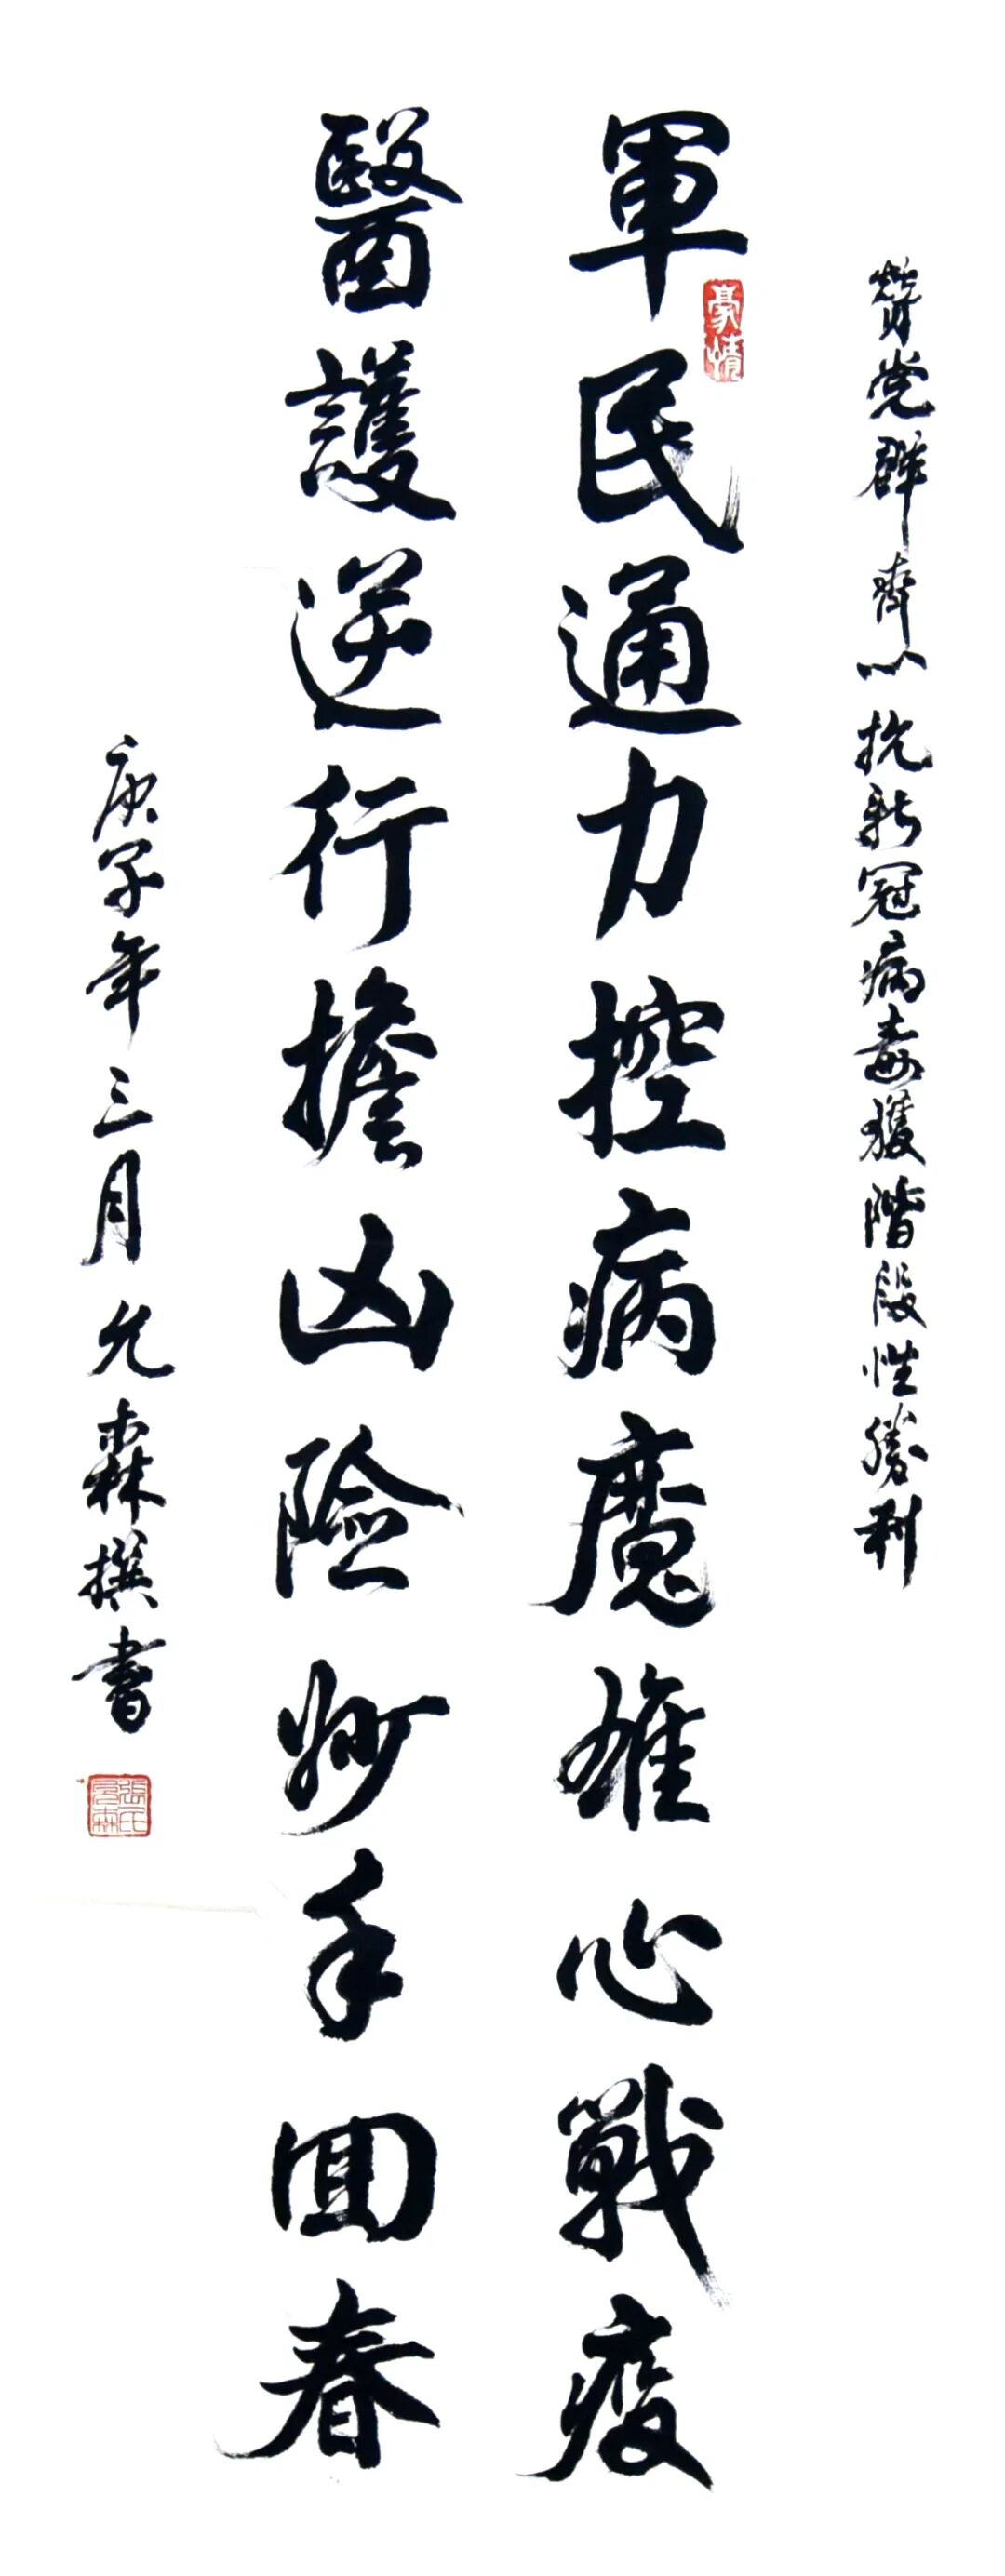 赞党群齊心抗新冠病毒獲階段性勝利
軍民通力控病魔雄心戰疫
豪情
醫護逆行擔凶險妙手回春
庚子年三月允森撰書
張氏允森